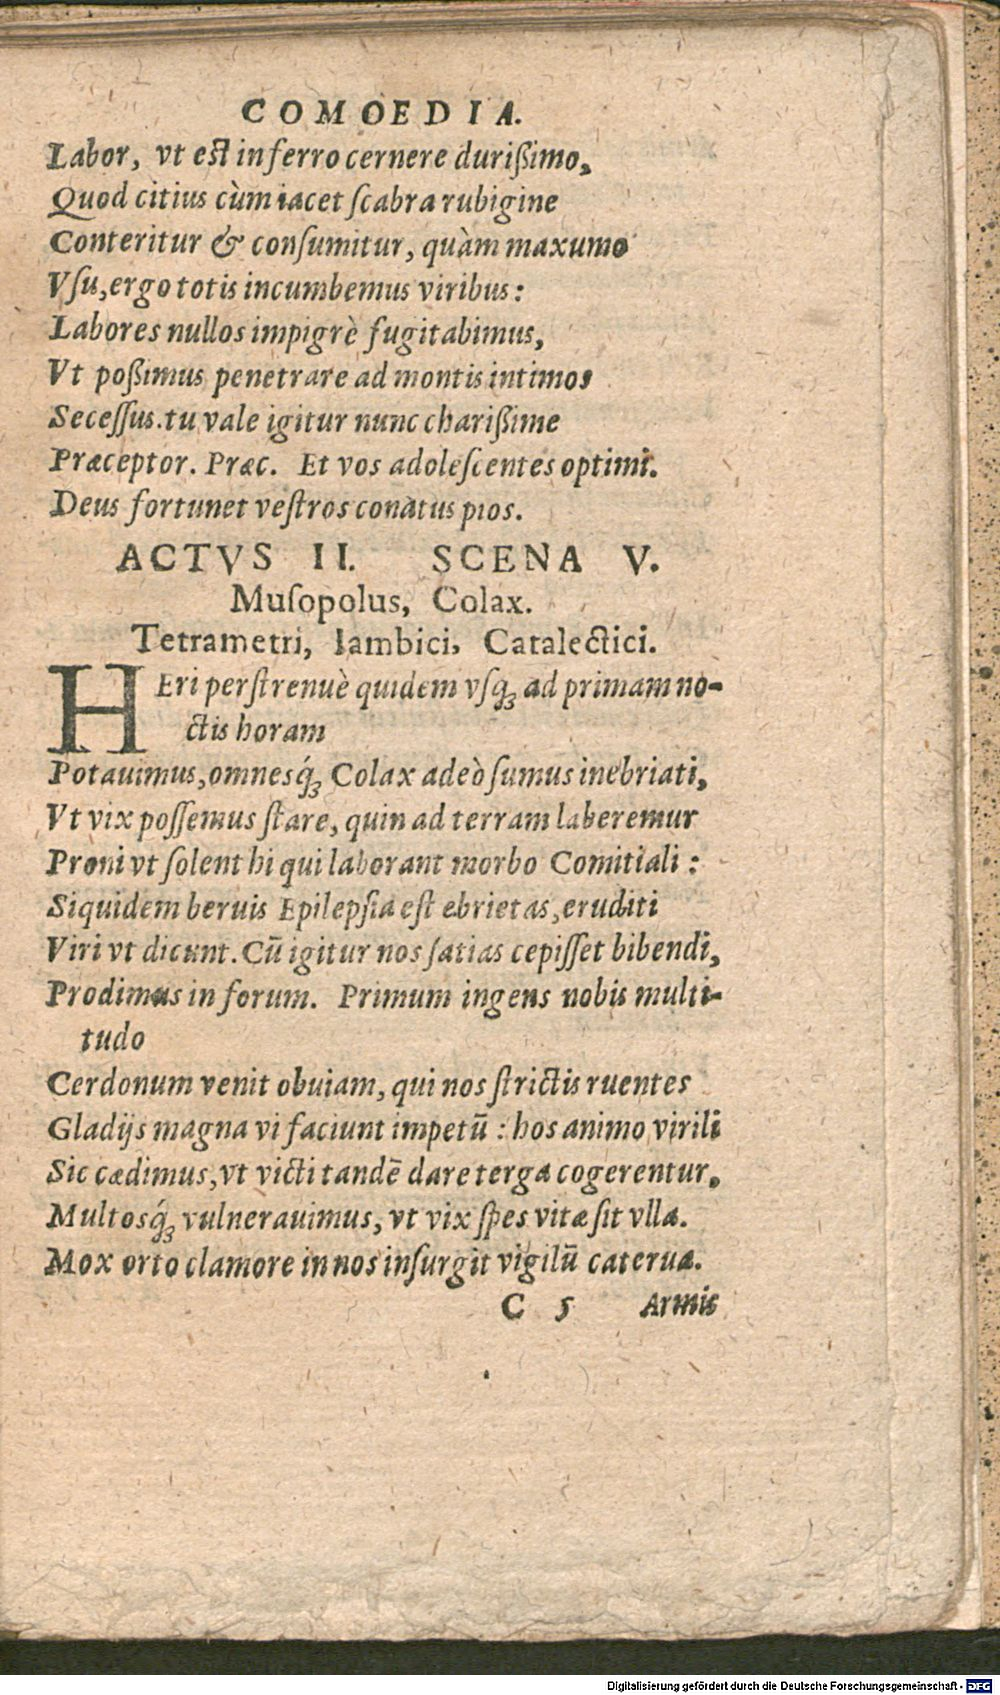 COMOEDIA.
Labor, vt est in ferro cernere durißimo,
Quod citius cùm iacet ſcabra rubigine
Conteritur & conſumitur, quàm maxumo
Vſu, ergo totis incumbemus viribus:
Labores nullos impigrè fugitabimus,
Vt poßimus penetrare ad montis intimos
Seceſſus. tu vale igitur nunc charißime
Præceptor. Præc. Et vos adoleſcentes optimi.
Deus fortunet veſtros conatus pios.
ACTVS II. SCENA V.
Muſopolus, Colax.
Tetrametri, Iambici, Catalectici.
HEri perſtrenuè quidem vſq́ꝫ ad primam no-
ctis horam
Potauimus, omnesq́ꝫ Colax adeò ſumus inebriati,
Vt vix poſſemus ſtare, quin ad terram laberemur
Proni vt ſolent hi qui laborant morbo Comitiali:
Siquidem beruis Epilepſia eſt ebrietas, eruditi
Viri vt dicunt. Cū igitur nos ſatias cepiſſet bibendi,
Prodimus in forum. Primum ingens nobis multi-
tudo
Cerdonum venit obuiam, qui nos ſtrictis ruentes
Gladijs magna vi faciunt impetū: hos animo virili
Sic cædimus, vt victi tandē dare terga cogerentur.
Multosq́ꝫ vulnerauimus, vt vix ſpes vitæ ſit vlla.
Mox orto clamore in nos inſurgit vigilū caterua.
C 5 Armis
Digitalisierung gefördert durch die Deutsche Forschungsgemeinschaft - DFG